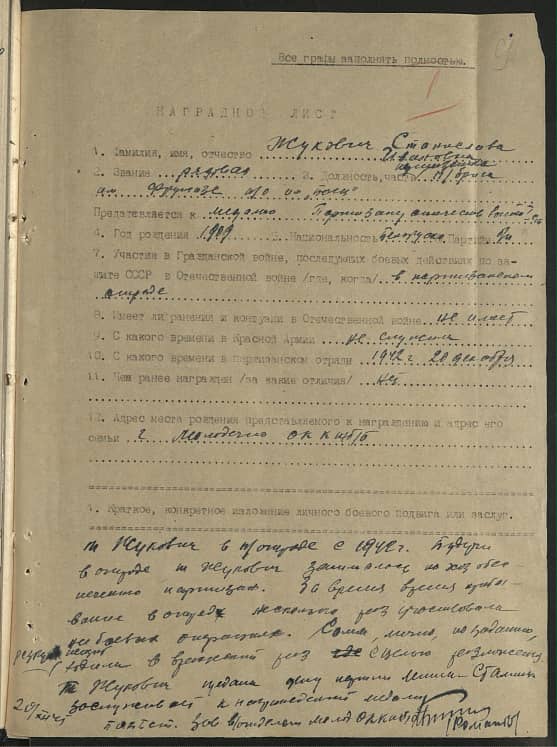 Все графы заполнять полностью.
НАГРАДНОЙ ЛИСТ
1. Фамилия, имя, отчество Жукович Станислава
Ивановна
2. Звание рядовая 3. Должность, часть п/брига
им Фрунзе п/о им
Предтавляется к медалю Партизану отечеств войны
4. Год рождения 1909 5. Национальность белоруска Партийн
7. Участие в Гражданской войне, последующих боевых действиях по за-
щите СССР в Отечественной войне /где, когда/ в партизанском
отряде
8. Имеет ли ранения и контузии в Отечественной войне не имеет
9. С какого времени в Красной Армии не служила
10. С какого времени в партизанском отряде 1942 г 20 декабря
11. Чем ранее награжден /за какие отличия/ нет
12. Адрес места рождения представляемого к награждению и адрес его
семьи г. Молодечно
1. Краткое, конкретное изложение личного боевого подвига или заслуг.
т Жукович в п/отряде с 1942 г. Будучи
в отряде т Жукович занималась по хоз обес
печению партизан. За время время пребы-
вание в отряде несколько раз участвовала
в боевых операциях. Сама, лично, по заданию,
ходила в вражеский с целью разложения
т Жукович предана делу партии Ленина Сталина
заслуживает к награждению медали